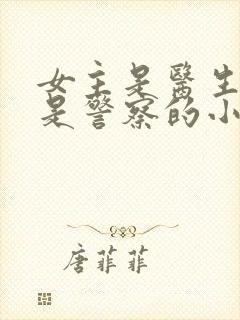 女主是醫生
是警察的小
唐菲菲